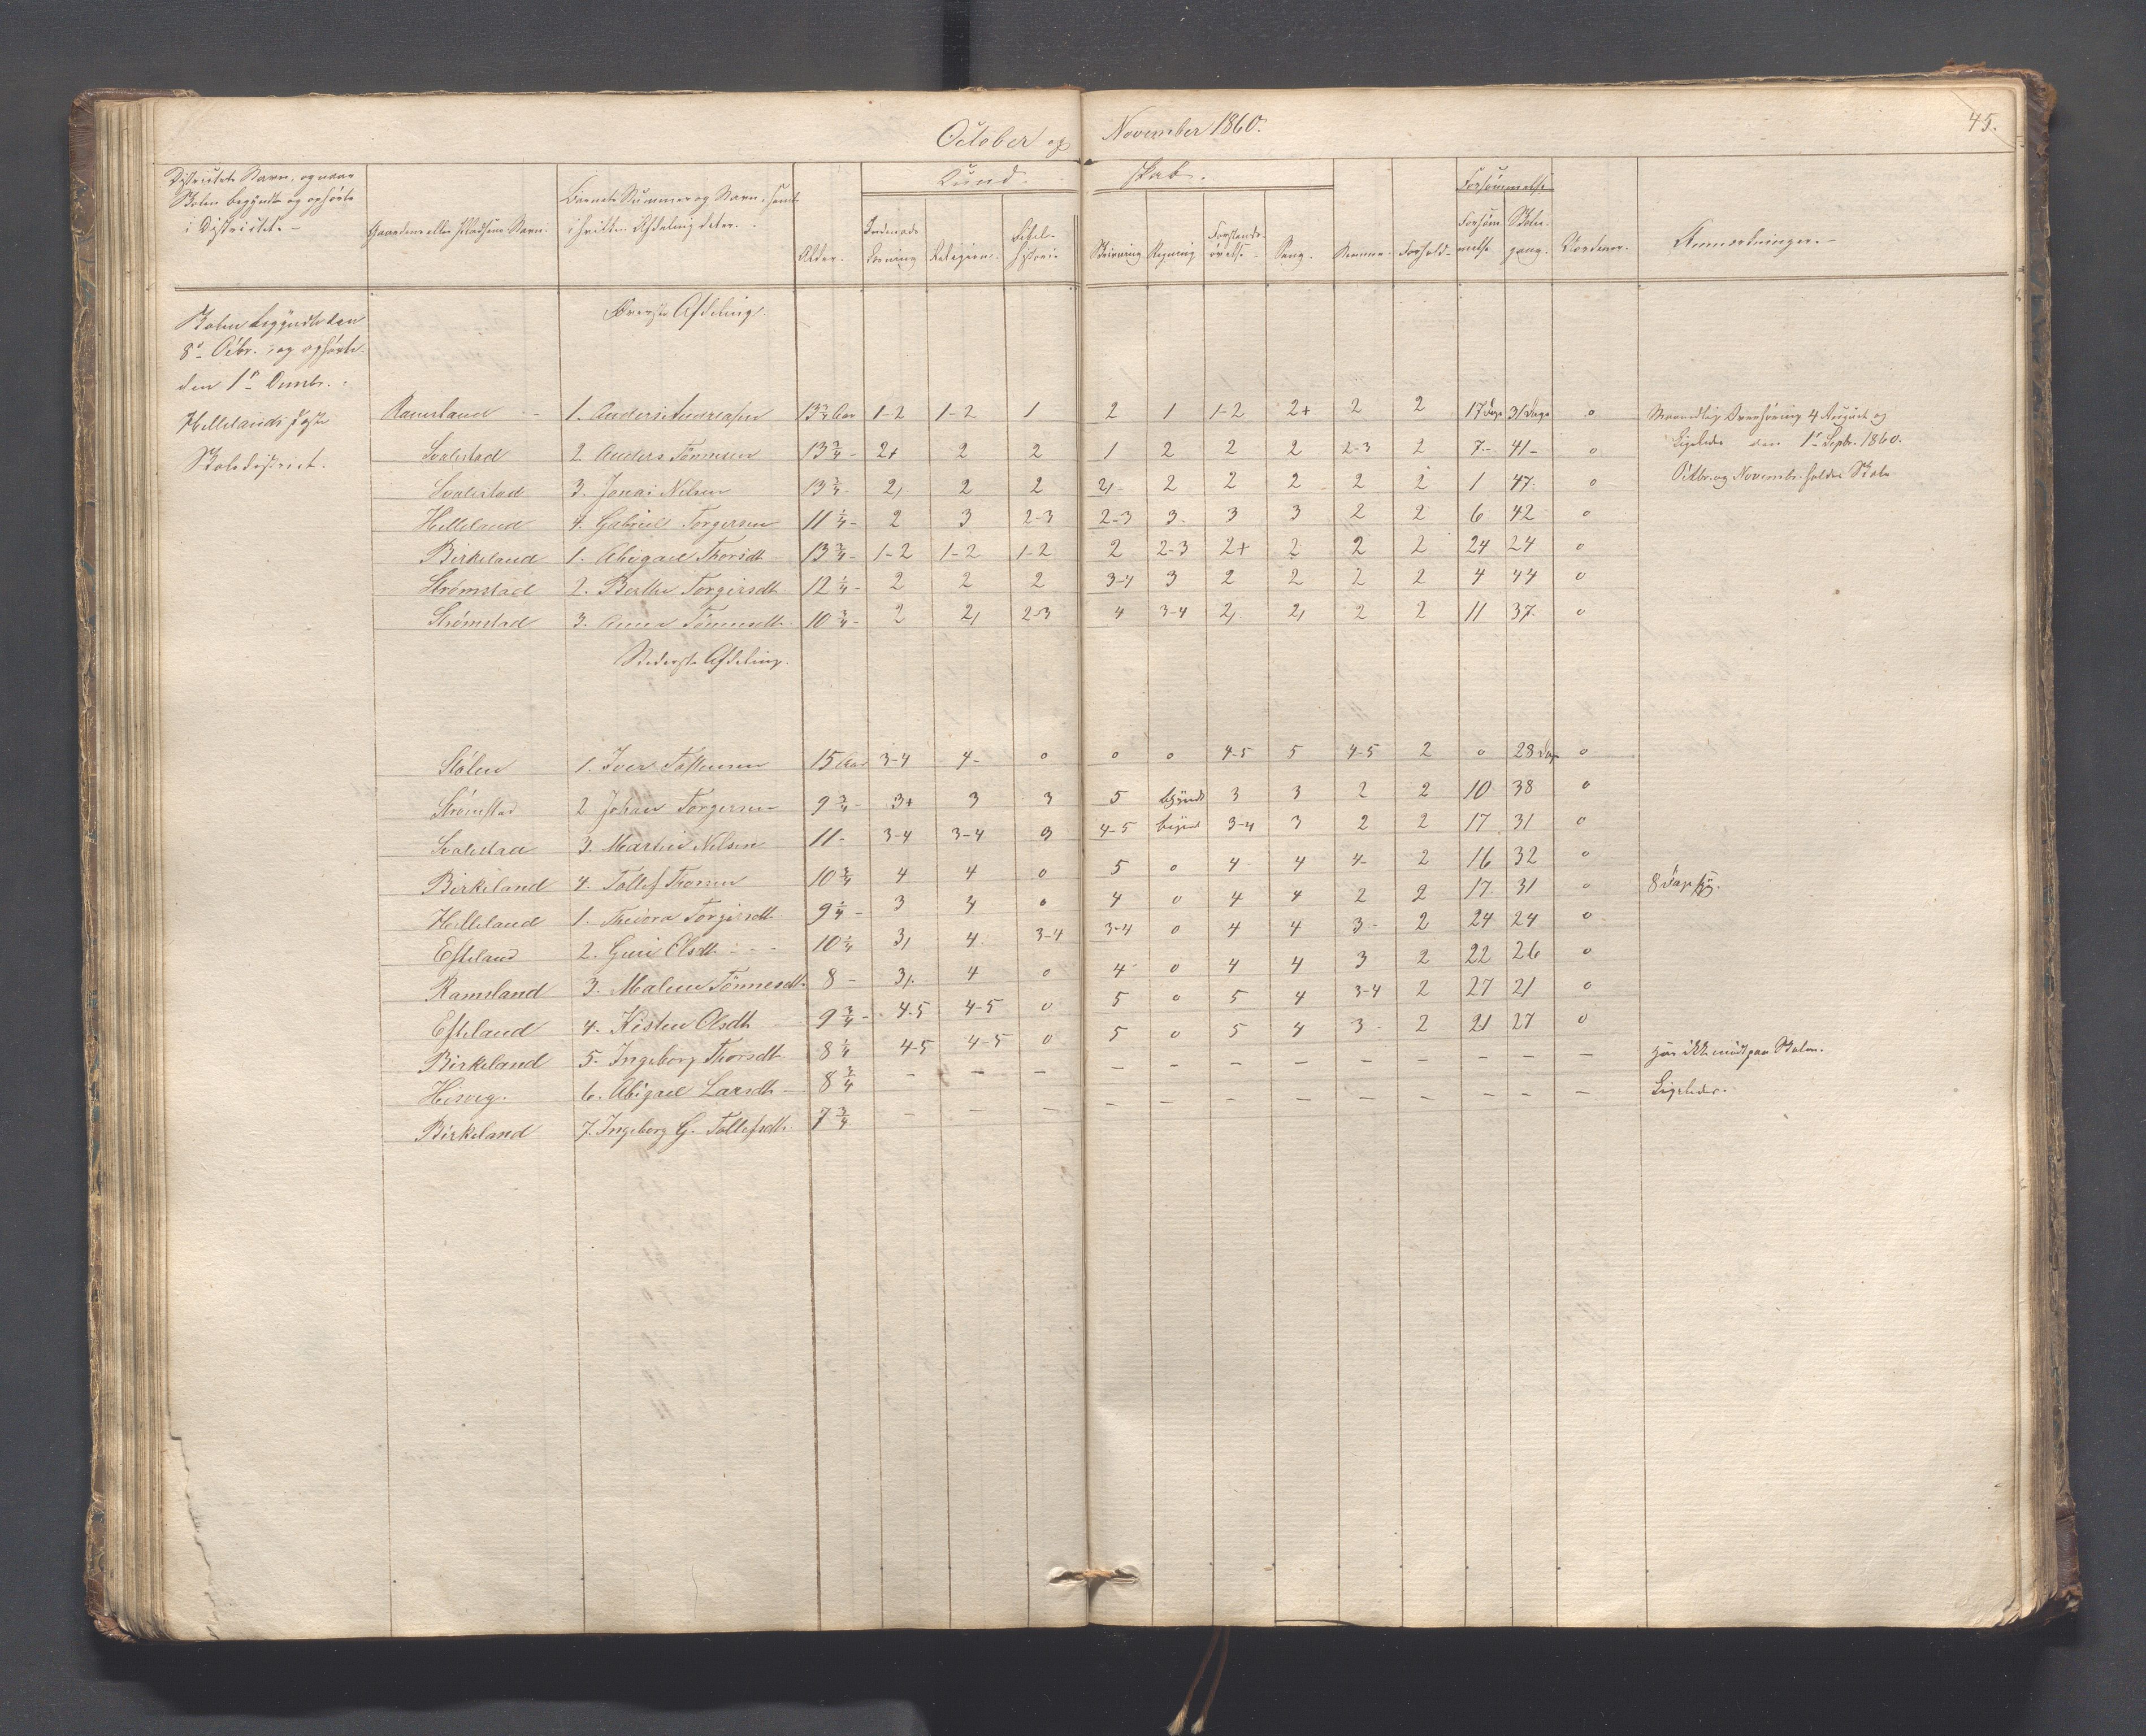 October og November 1860.
45.
Districtets Navn, og naar Skolen begyndte og ophørte i Districtet. –
Gaardens eller Pladsens Navn.
Barnets Nummer og Navn, samt i hvilken Afdeling det er.
Alder.
Kundskab.
Læsning
Religion
Bibel-historie
Skrivning
Regning
Forstands-øvelse
Sang.
Nemme.
Forhold.
Forsømmelse
Forsømmelse
Skolegang.
Anmerkninger. –
Skolen begyndte den
8de Octbr. og ophørte
den 1ste Decembr.
Hellelands faste
Skoledistrict.
Øverste Afdeling.
Ramsland 1. Anders Andreasen 13 3/4 Aar 1-2 1-2 1 2 1 1-2 2+ 2 2 17 Dage 31 Dage 0 Maanedlig Overhøring 4 August og
Svalestad 2. Anders Tønnesen 13 3/4 - 2+ 2 2 1 2 2 2 2-3 2 7 - 41 - 0 Ligeledes den 1ste Septr. 1860.
Svalestad 3. Jonas Nilsen 13 3/4 - 2, 2 2 2, 2 2 2 2 2 1 47. 0 Octbr. og Novembr. holdes Skole
Helleland 4. Gabriel Torgersen 11 1/4 - 2 3 2-3 2-3 3. 3 3 2 2 6 42 0
Birkeland 1. Abigael Thorsdt. 13 3/4 - 1-2 1-2 1-2 2 2-3 2+ 2 2 2 24 24 0
Strømstad 2. Berthe Torgersdt. 12 1/4 - 2 2 2 3-4 3 2 2 2 2 4 44 0
Strømstad 3. Anna Tønnesdt. 10 3/4 - 2 2, 2-3 4 3-4 2, 2, 2 2 11 37. 0
Nederste Afdeling.
Stølen 1. Iver Tostensen 15 Aar 3-4 4- 0 0 0 4-5 5 4-5 2 0 28 Dage 0
Strømstad 2 Johan Torgersen 9 3/4 - 3+ 3 3 5 begyndt 3 3 2 2 10 38 0
Svalestad 3. Martin Nilsen 11 - 3-4 3-4 3 4-5 begyndt 3-4 3 2 2 17 31 0
Birkeland 4. Tollef Thorsen 10 3/4 4 4 0 5 0 4 4 4- 2 16 32 0
Helleland 1. Theodora Torgersdt. 9 1/4 - 3 4 0 4 0 4 4 2 2 17. 31 0 8 Dage syg.
Efteland 2. Guri Olsdt. 10 1/4 3, 4. 3-4 3-4 0 4 4 3- 2 24 24 0
Ramsland 3. Malene Tønnesdt. 8 - 3, 4 0 4 0 4 4 3 2 22 26 0
Efteland 4. Kisten Olsdt. 9 3/4 - 4-5 4-5 0 5 0 5 4 3-4 2 27 21 0
Birkeland 5. Ingeborg Thorsdt. 8 1/4 4-5 4-5 0 5 0 5 4 3- 2 21 27 0
Hisveg. 6. Abigael Larsdt. 8 3/4 – – – – – – – – – – – – har ikke mødt paa Skolen.
Birkeland 7. Ingeborg G. Tollefsdt. 7 3/4 – – – – – – – – – – – – Ligeledes.